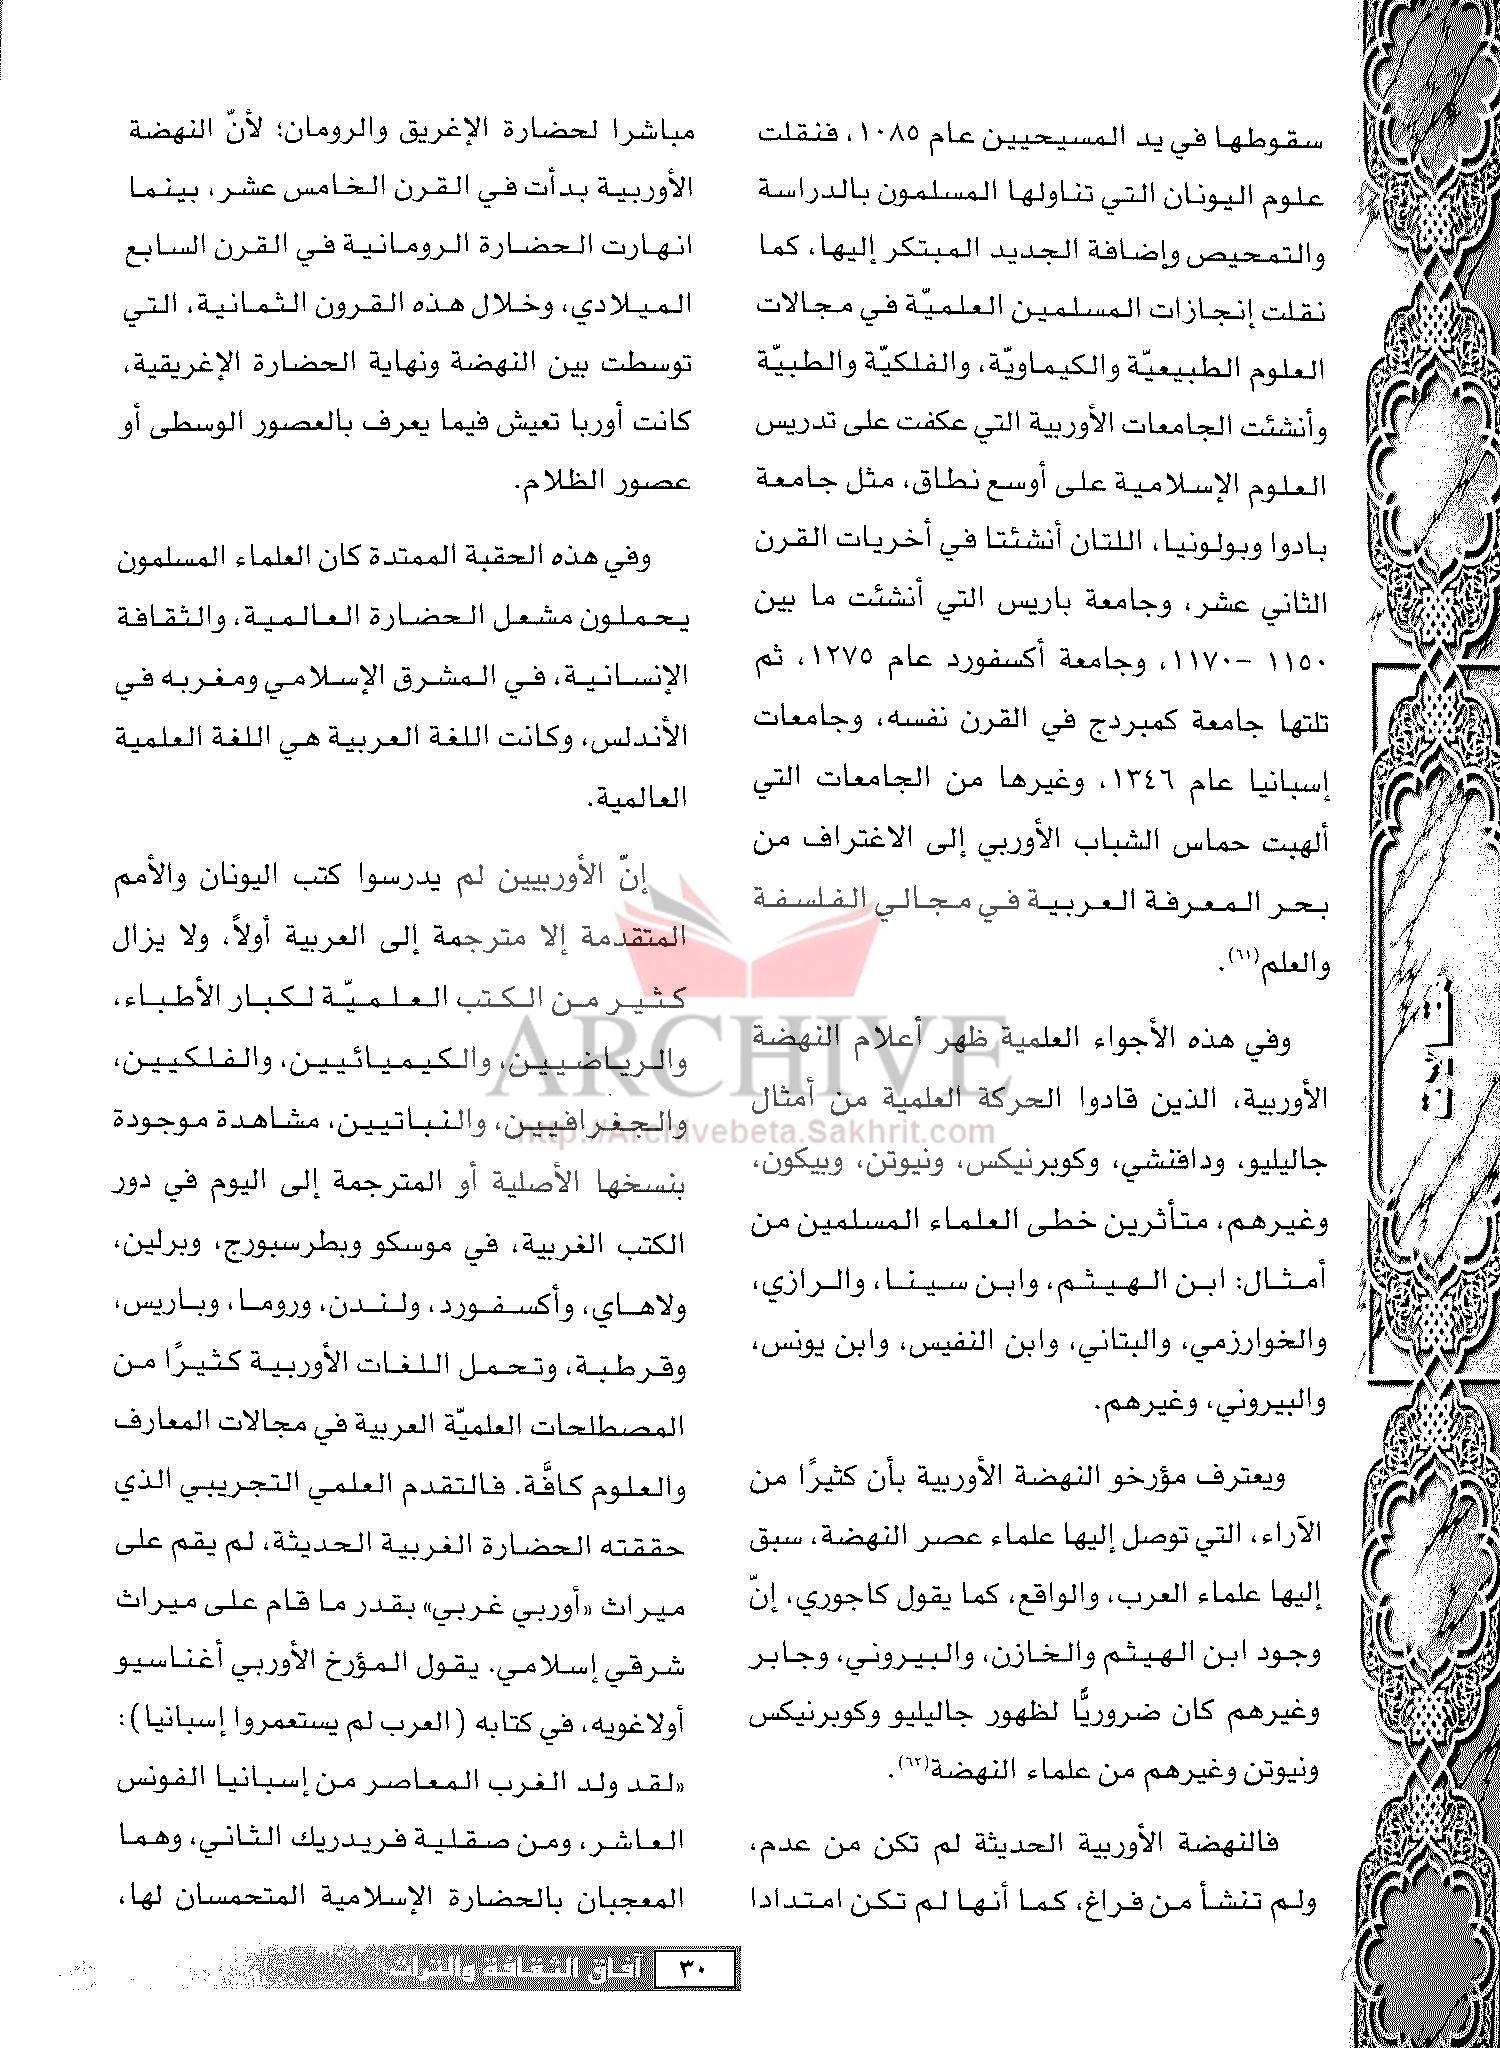 سقوطها في يد المسيحيين عام ١٠٨٥، فنقلت
علوم اليونان التي تناولها المسلمون بالدراسة
والتمحيص وإضافة الجديد المبتكر إليها، كما
نقلت إنجازات المسلمين العلميّة في مجالات
العلوم الطبيعيّة والكيماويّة، والفلكيّة والطبيّة
وأنشئت الجامعات الأوربية التي عكفت على تدريس
العلوم الإسلامية على أوسع نطاق، مثل جامعة
بادوا وبولونيا، اللتان أنشئتا في أخريات القرن
الثاني عشر، وجامعة باريس التي أنشئت ما بين
١١٥٠ -١١٧٠، وجامعة أكسفورد عام ١٢٧٥، ثم
تلتها جامعة كمبردج في القرن نفسه، وجامعات
إسبانيا عام ١٣٤٦، وغيرها من الجامعات التي
ألهبت حماس الشباب الأوربي إلى الاغتراف من
بحر المعرفة العربية في مجالي الفلسفة
والعلم(٦١).
وفي هذه الأجواء العلمية ظهر أعلام النهضة
الأوربية، الذين قادوا الحركة العلمية من أمثال
جاليليو، ودافنشي، وكوبرنيكس، ونيوتن، وبيكون،
وغيرهم، متأثرين خطى العلماء المسلمين من
أمثال: ابن الهيثم، وابن سينا، والرازي،
والخوارزمي، والبتاني، وابن النفيس، وابن يونس،
والبيروني، وغيرهم.
ويعترف مؤرخو النهضة الأوربية بأن كثيرًا من
الآراء، التي توصل إليها علماء عصر النهضة، سبق
إليها علماء العرب، والواقع، كما يقول كاجوري، إنّ
وجود ابن الهيثم والخازن، والبيروني، وجابر
وغيرهم كان ضروريًّا لظهور جاليليو وكوبرنيكس
ونيوتن وغيرهم من علماء النهضة(٦٢).
فالنهضة الأوربية الحديثة لم تكن من عدم،
ولم تنشأ من فراغ، كما أنها لم تكن امتدادا
مباشرا لحضارة الإغريق والرومان؛ لأنّ النهضة
الأوربية بدأت في القرن الخامس عشر، بينما
انهارت الحضارة الرومانية في القرن السابع
الميلادي، وخلال هذه القرون الثمانية، التي
توسطت بين النهضة ونهاية الحضارة الإغريقية،
كانت أوربا تعيش فيما يعرف بالعصور الوسطى أو
عصور الظلام.
وفي هذه الحقبة الممتدة كان العلماء المسلمون
يحملون مشعل الحضارة العالمية، والثقافة
الإنسانية، في المشرق الإسلامي ومغربه في
الأندلس، وكانت اللغة العربية هي اللغة العلمية
العالمية.
إنّ الأوربيين لم يدرسوا كتب اليونان والأمم
المتقدمة إلا مترجمة إلى العربية أولاً، ولا يزال
كثير من الكتب العلميّة لكبار الأطباء،
والرياضيين، والكيميائيين، والفلكيين،
والجغرافيين، والنباتيين، مشاهدة موجودة
بنسخها الأصلية أو المترجمة إلى اليوم في دور
الكتب الغربية، في موسكو وبطرسبورج، وبرلين،
ولاهاي، وأكسفورد، ولندن، وروما، وباريس،
وقرطبة، وتحمل اللغات الأوربية كثيرًا من
المصطلحات العلميّة العربية في مجالات المعارف
والعلوم كافَّة. فالتقدم العلمي التجريبي الذي
حققته الحضارة الغربية الحديثة، لم يقم على
ميراث «أوربي غربي» بقدر ما قام على ميراث
شرقي إسلامي. يقول المؤرخ الأوربي أغناسيو
أولاغويه، في كتابه (العرب لم يستعمروا إسبانيا):
«لقد ولد الغرب المعاصر من إسبانيا الفونس
العاشر، ومن صقلية فريدريك الثاني، وهما
المعجبان بالحضارة الإسلامية المتحمسان لها،
ARCHIVE
http://Archivebeta.Sakhrit.com
٣٠ آفاق الثقافة والتراث